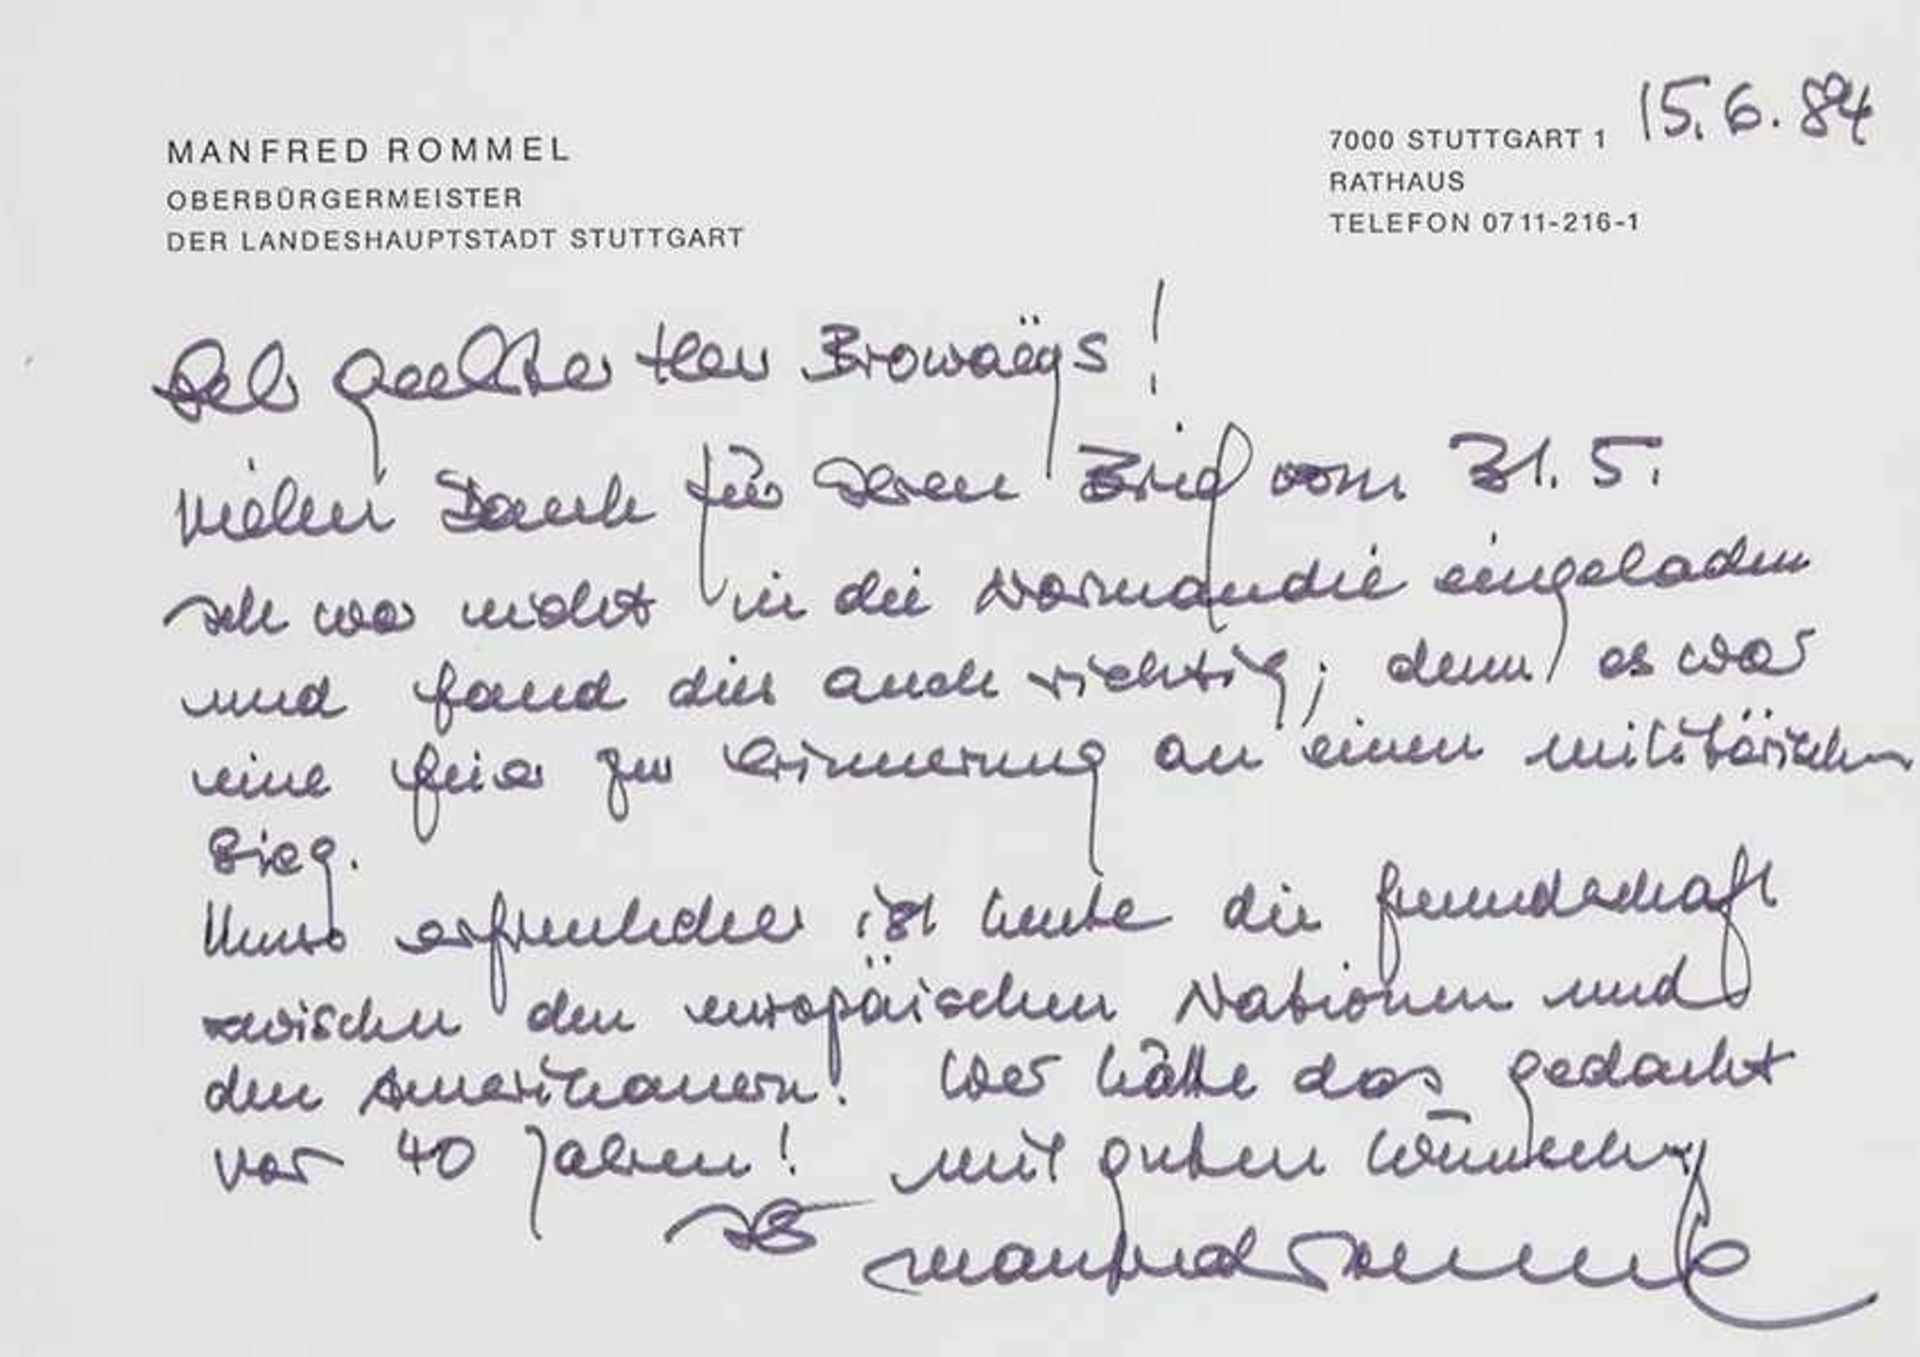 MANFRED ROMMEL
OBERBÜRGERMEISTER
DER LANDESHAUPTSTADT STUTTGART
7000 STUTTGART 1
RATHAUS
TELEFON 0711-216-1
15.6.84
Sehr geehrter Herr Browaëys!
Vielen Dank für Ihren Brief vom 31.5.
Ich war nicht in die Normandie eingeladen
und fand dies auch richtig; denn es war
eine Feier zur Erinnerung an einen militärischen
Sieg.
Umso erfreulicher ist heute die Freundschaft
zwischen den europäischen Nationen und
den Amerikanern. Wer hätte das gedacht
vor 40 Jahren! Mit guten Wünschen
Ihr Manfred Rommel